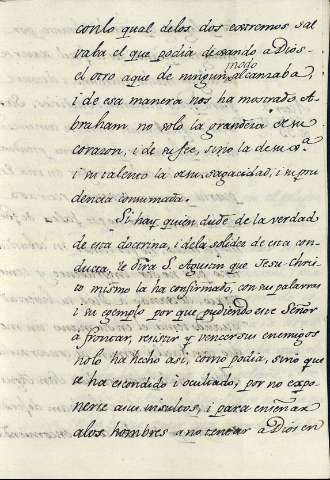 con lo qual de los dos estremos sal
vaba el que podia dexando a Dios
el otro aque de ningun modo alcanzaba,
i de esa manera nos ha mostrado A-
braham no solo la grandeza de su
corazon, i de su fee, sino la de su
i su talento la de su sagacidad, i su pru
dencia consumada.
Si hay quien dude de la verdad
de esta doctrina, i de la solidez de esta con
ducta, le dira S. Agustin que Jesu Chri
to mismo la ha confirmado, con su palabras
i su egemplo por que pudiendo este Señor
afrontar, resistir y vencer sus enemigos
no lo ha hecho asi, como podia, sino que
se ha escondido i ocultado, por no expo
nerse a sus insultos, i para enseñar
a los hombres a no tentar a Dios en